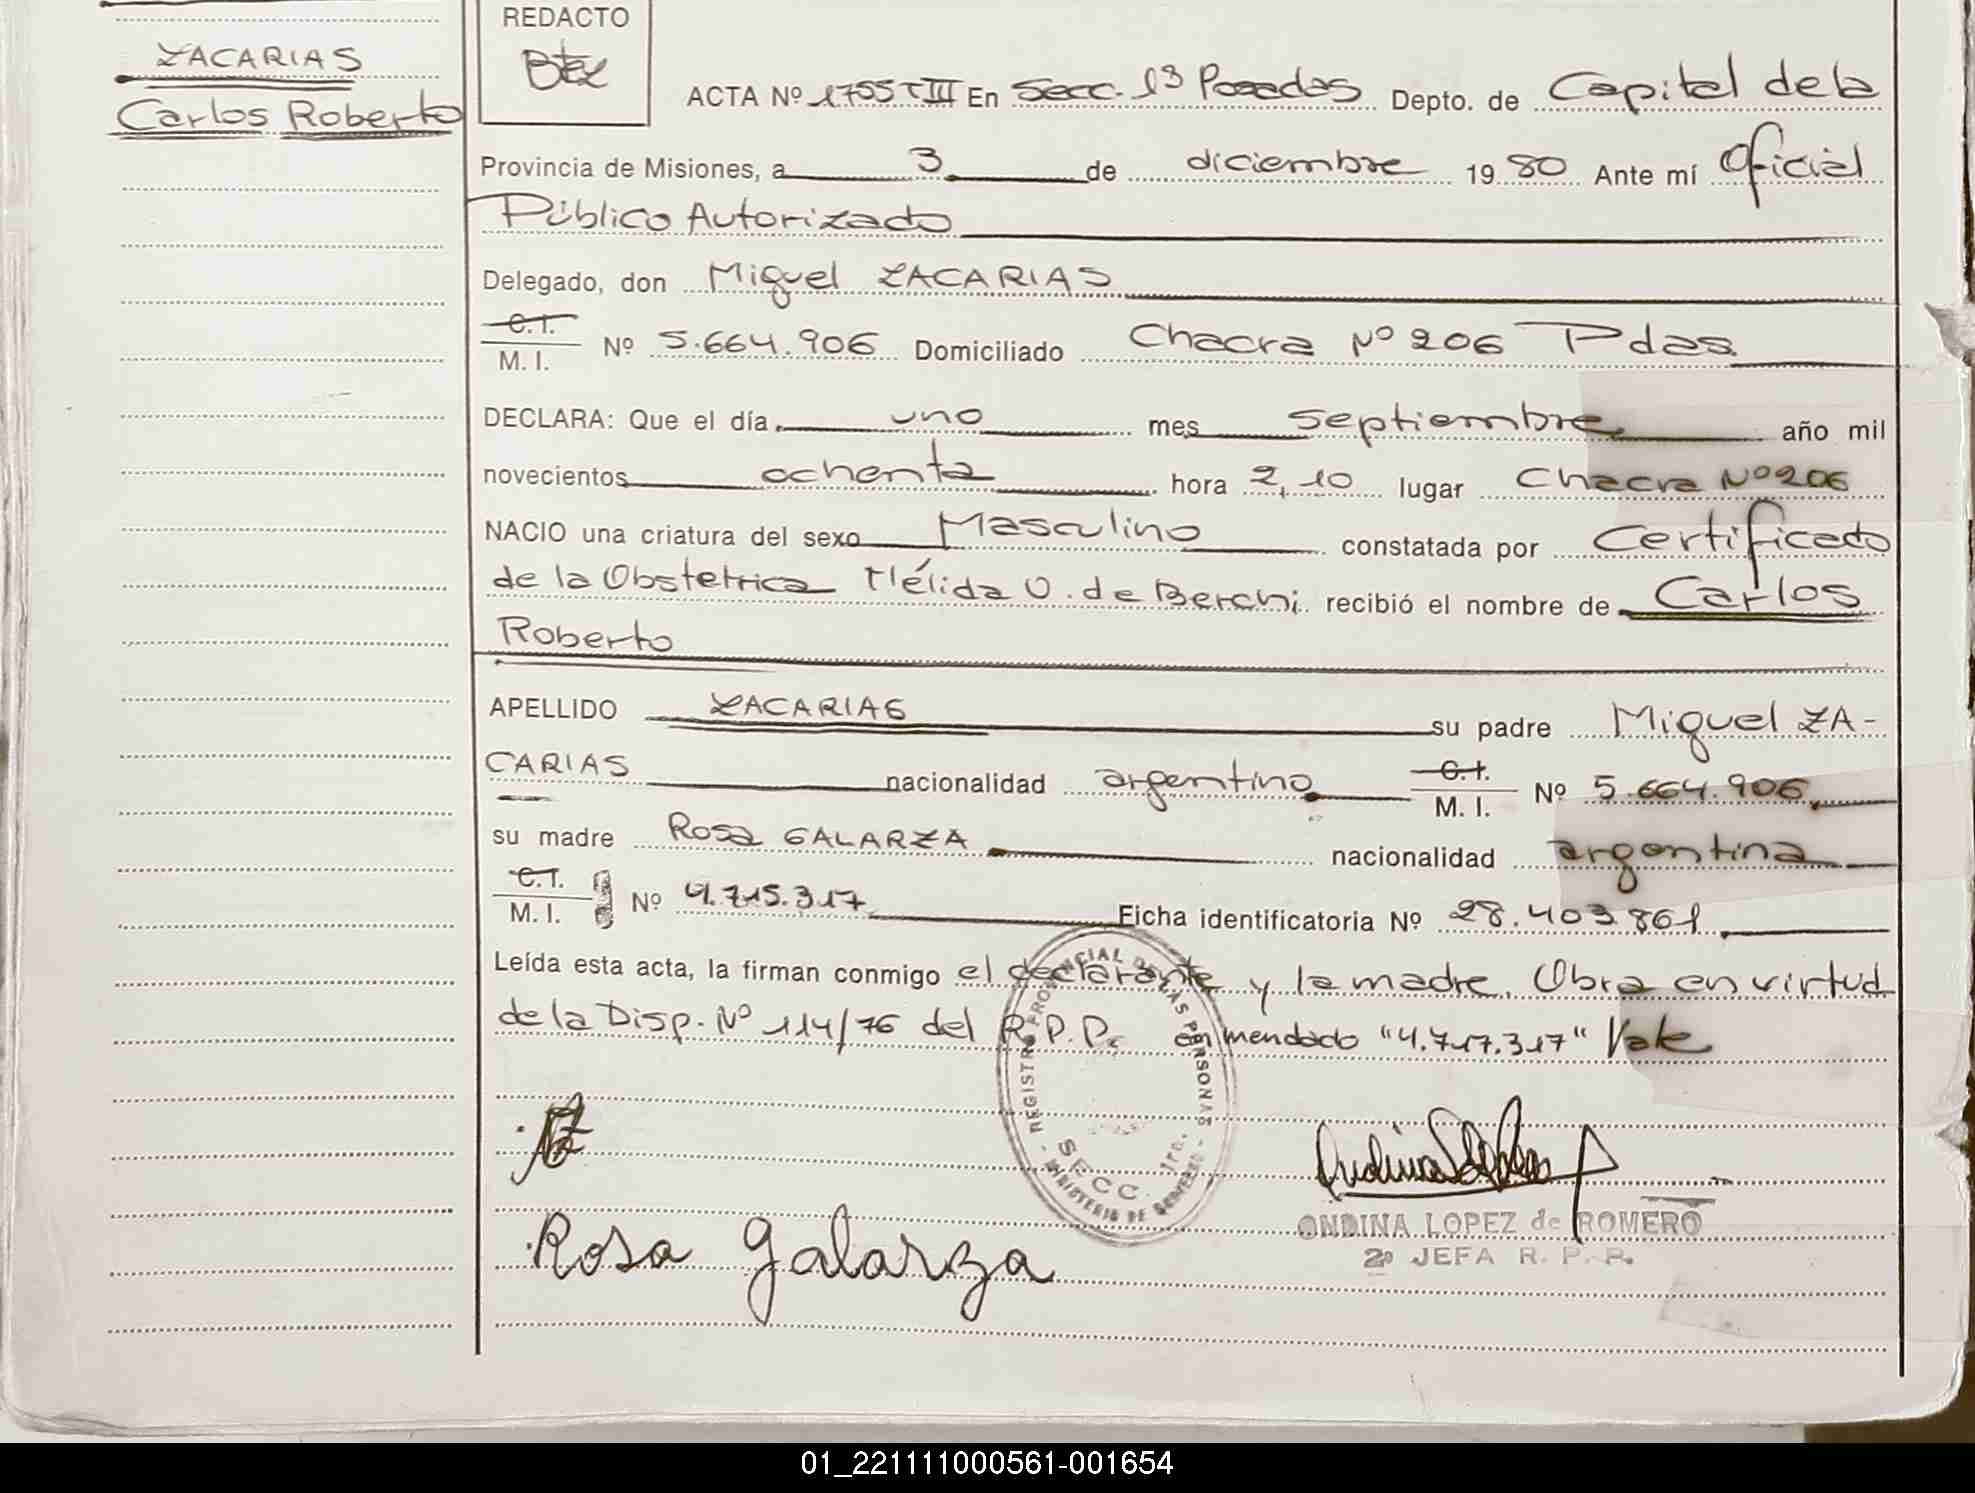 ZACARIAS
Carlos Roberto
REDACTO
ACTA Nº 1755 T III En Secc. 1ª Posadas Depto. de Capital de la
Provincia de Misiones, a 3 de diciembre 1980 Ante mí Oficial
Público Autorizado
Delegado, don Miguel ZACARIAS
C.I.
M. I. Nº 5.664.906 Domiciliado Chacra Nº 206 Pdas.
DECLARA: Que el día uno mes septiembre año mil
novecientos ochenta hora 2,10 lugar Chacra Nº 206
NACIO una criatura del sexo Masculino constatada por Certificado
de la Obstetrica Nélida O. de Berchi recibió el nombre de Carlos
Roberto
APELLIDO ZACARIAS su padre Miguel ZA-
CARIAS nacionalidad argentino C.I.
M. I. Nº 5.664.906
su madre Rosa GALARZA nacionalidad argentina
C.I.
M. I. Nº 4.715.317 Ficha identificatoria Nº 28.403.861
Leída esta acta, la firman conmigo el declarante y la madre. Obra en virtud
de la Disp. Nº 114/76 del R.P.P. enmendado "4.717.317" Vale
REGISTRO PROVINCIAL DE LAS PERSONAS
SECC. 1ra.
MINISTERIO DE GOBIERNO
Rosa Galarza
ONDINA LOPEZ de ROMERO
2ª JEFA R. P. P.
01_221111000561-001654